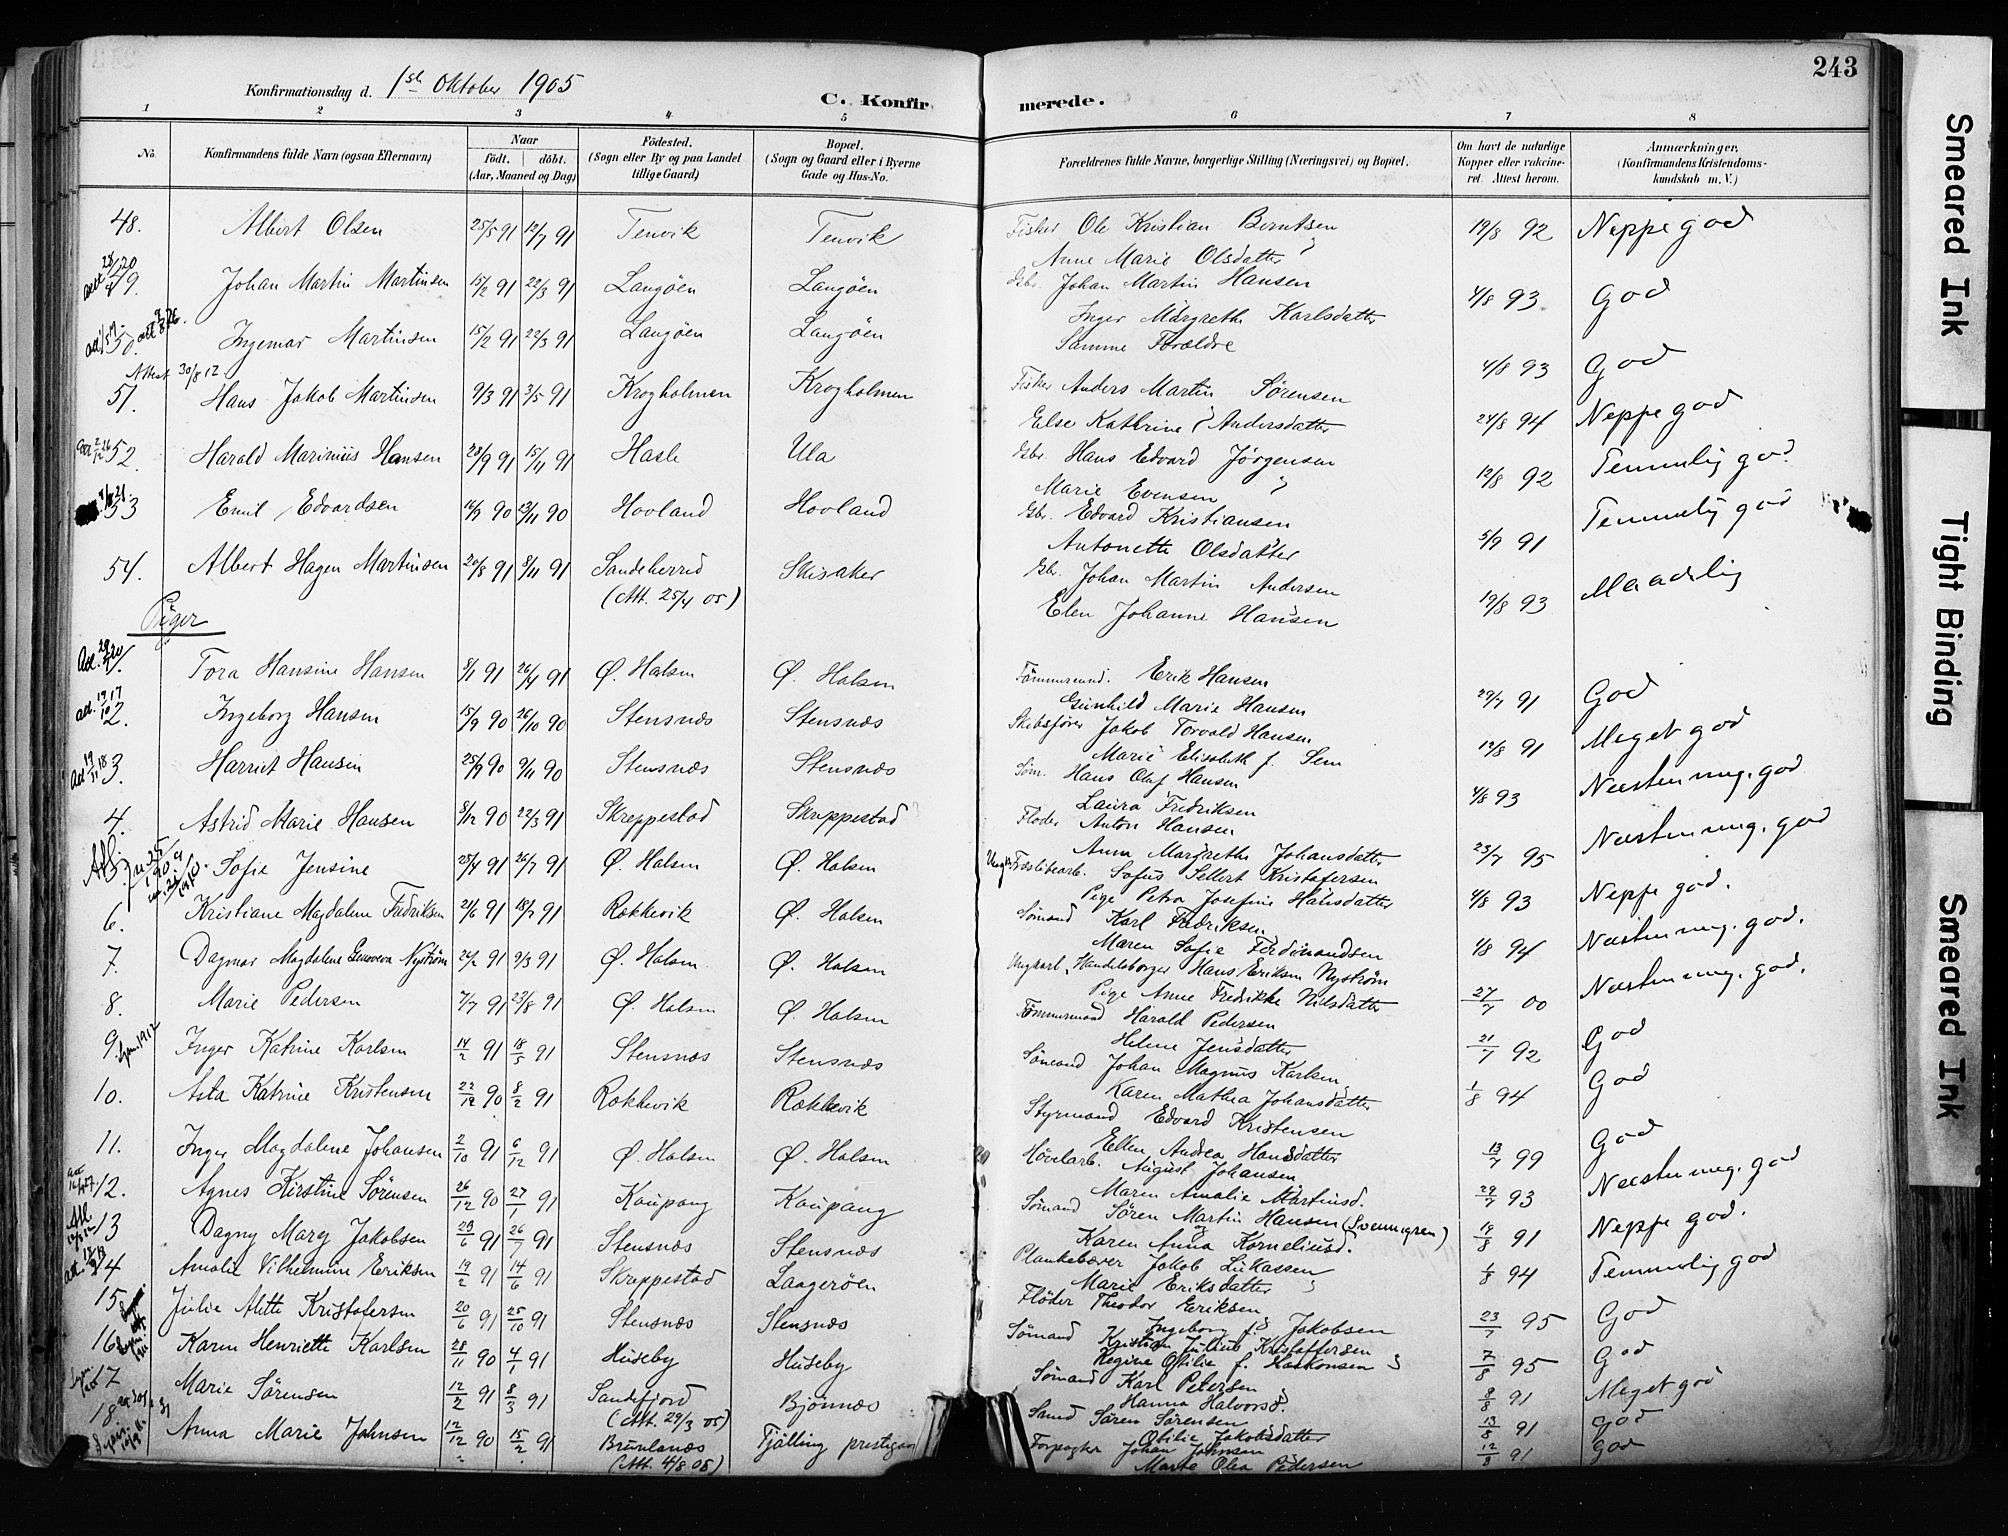 243
Konfirmationsdag d. 1ste Oktober 1905
C. Konfirmerede.
1 2 3 4 5 6 7 8
No. Konfirmandens fulde Navn (ogsaa Efternavn) Naar født. døbt. (Aar, Maaned og Dag) Fødested. (Sogn eller By og paa Landet tillige Gaard) Bopæl. (Sogn og Gaard eller i Byerne Gade og Hus-No. Forældrenes fulde Navne, borgerlige Stilling (Næringsvei) og Bopæl. Om havt de naturlige Kopper eller vakcineret. Attest herom. Anmærkninger, (Konfirmandens Kristendomskundskab m. V.)
48. Albert Olsen 25/5 91 12/7 91 Tenvik Tenvik Fisker Ole Kristian Berntsen 19/8 92 Neppe god
Anne Marie Olsdatter
49. Johan Martin Martinsen 15/2 91 22/3 91 Langöen Langöen Gbr. Johan Martin Hansen 4/8 93 God
Inger Margrethe Karlsdatter
50. Ingemar Martinsen 15/2 91 22/3 91 Langöen Langöen Samme Forældre 4/8 93 God
Attest 30/8 12
51. Hans Jakob Martinsen 9/3 91 3/5 91 Krogholmen Krogholmen Fisker Anders Martin Sørensen 24/8 94 Neppe god
Else Kathrine Andersdatter
52. Harald Marinius Hansen 28/9 91 15/11 91 Hasle Ula Gbr. Hans Edvard Jørgensen 12/8 92 Temmelig god
Marie Evensen
53 Emil Edvardsen 16/9 90 23/11 90 Hovland Hovland Gbr. Edvard Kristiansen 5/9 91 Temmelig god
Antonette Olsdatter
54. Albert Hagen Martinsen 20/8 91 8/11 91 Sandeherred Skisaker Gbr. Johan Martin Andersen 19/8 93 Maadelig
(Att. 25/4 05) Elen Johanne Hansen
Piger
1. Tora Hansine Hansen 8/1 91 26/4 91 Ø. Halsen Ø. Halsen Tömmermd. Erik Hansen 29/7 91 God
Gunhild Marie Hansen
2. Ingeborg Hansen 15/9 90 26/10 90 Stensnæs Stensnæs Skibsfører Jakob Torvald Hansen 19/8 91 Meget god
Marie Elisabeth f. Sem
3. Harriet Hansen 25/9 90 9/11 90 Stensnæs Stensnæs Søm. Hans Olaf Hansen 4/8 93 Næsten meg. god
Laura Fredriksen
4. Astrid Marie Hansen 8/12 90 22/3 91 Skreppestad Skreppestad Fløder Anton Hansen 23/7 95 Næsten meg. god
Anna Margrethe Johansdatter
5. Sofie Jensine 25/4 91 26/7 91 Ø. Halsen Ø. Halsen Ungk. Træslibearb. Sofus Sellert Kristofersen 4/8 93 Neppe god.
Pige Petra Josefine Halsdatter
6. Kristiane Magdalene Fredriksen 21/6 91 18/7 91 Rækkevik Ø. Halsen Sømand Karl Fredriksen 1/8 94 Næsten meg. god.
Maren Sofie Ferdinandsen
7. Dagmar Magdalene Genoveva Nystrøm 24/2 91 9/3 91 Ø. Halsen Ø. Halsen Ungkarl, Handelsborger Hans Eriksen Nystrøm 27/7 00 Næsten meg. god.
Pige Anne Fredrikke Nilsdatter
8. Marie Pedersen 7/7 91 23/8 91 Ø. Halsen Ø. Halsen Tømmermand Harald Pedersen 21/7 92 God
Helene Jensdatter
9. Inger Katrine Karlsen 14/2 91 18/5 91 Stensnæs Stensnæs Sömand Johan Magnus Karlsen 1/8 94 God
Karen Mathea Johansdatter
10. Asta Katrine Kristensen 22/12 90 8/2 91 Rækkevik Rækkevik Styrmand Edvard Kristensen 13/7 99 God
Ellen Andrea Hansdatter
11. Inger Magdalene Johansen 2/10 91 6/12 91 Ø. Halsen Ø. Halsen Høvelarb. August Johansen 29/7 93 Næsten meg. god
Maren Amalie Martinsd.
12. Agnes Kirstine Sørensen 26/12 90 27/1 91 Kaupang Kaupang Sømand Søren Martin Hansen (Svenngren) 19/8 91 Neppe god.
Karen Anna Korneliusd.
13 Dagny Mary Jakobsen 29/6 91 26/7 91 Stensnæs Stensnæs Plankebærer Jakob Lukassen 1/8 94 Temmelig god
Marie Eriksdatter
14 Amalie Vilhelmine Eriksen 19/2 91 14/6 91 Skreppestad Laagerøen Fløder Theodor Eriksen 23/7 95 God
Ingeborg f. Jakobsen
15. Julie Alette Kristofersen 20/6 91 25/10 91 Stensnæs Stensnæs Sømand Kristian Julius Kristoffersen 7/8 95 God
Regine Otilie f. Haakonsen
16 Karen Henriette Karlsen 28/11 90 4/1 91 Huseby Huseby Sømand Karl Petersen 8/8 91 Meget god
Hanna Halvorsd.
17 Marie Sørensen 12/2 91 8/3 91 Sandefjord Bjønnes Smed Søren Sørensen 13/8 91 god
(Att. 29/3 05) Otilie Jakobsdatter
18 Anna Marie Johnsen 12/12 90 15/2 91 Brunlanæs Tjølling prestegaard Forpagter Johan Johnsen 12/8 91 God
(Att. 4/8 05) Marte Olea Pedersen
Smeared Ink
Tight Binding
Smeared Ink